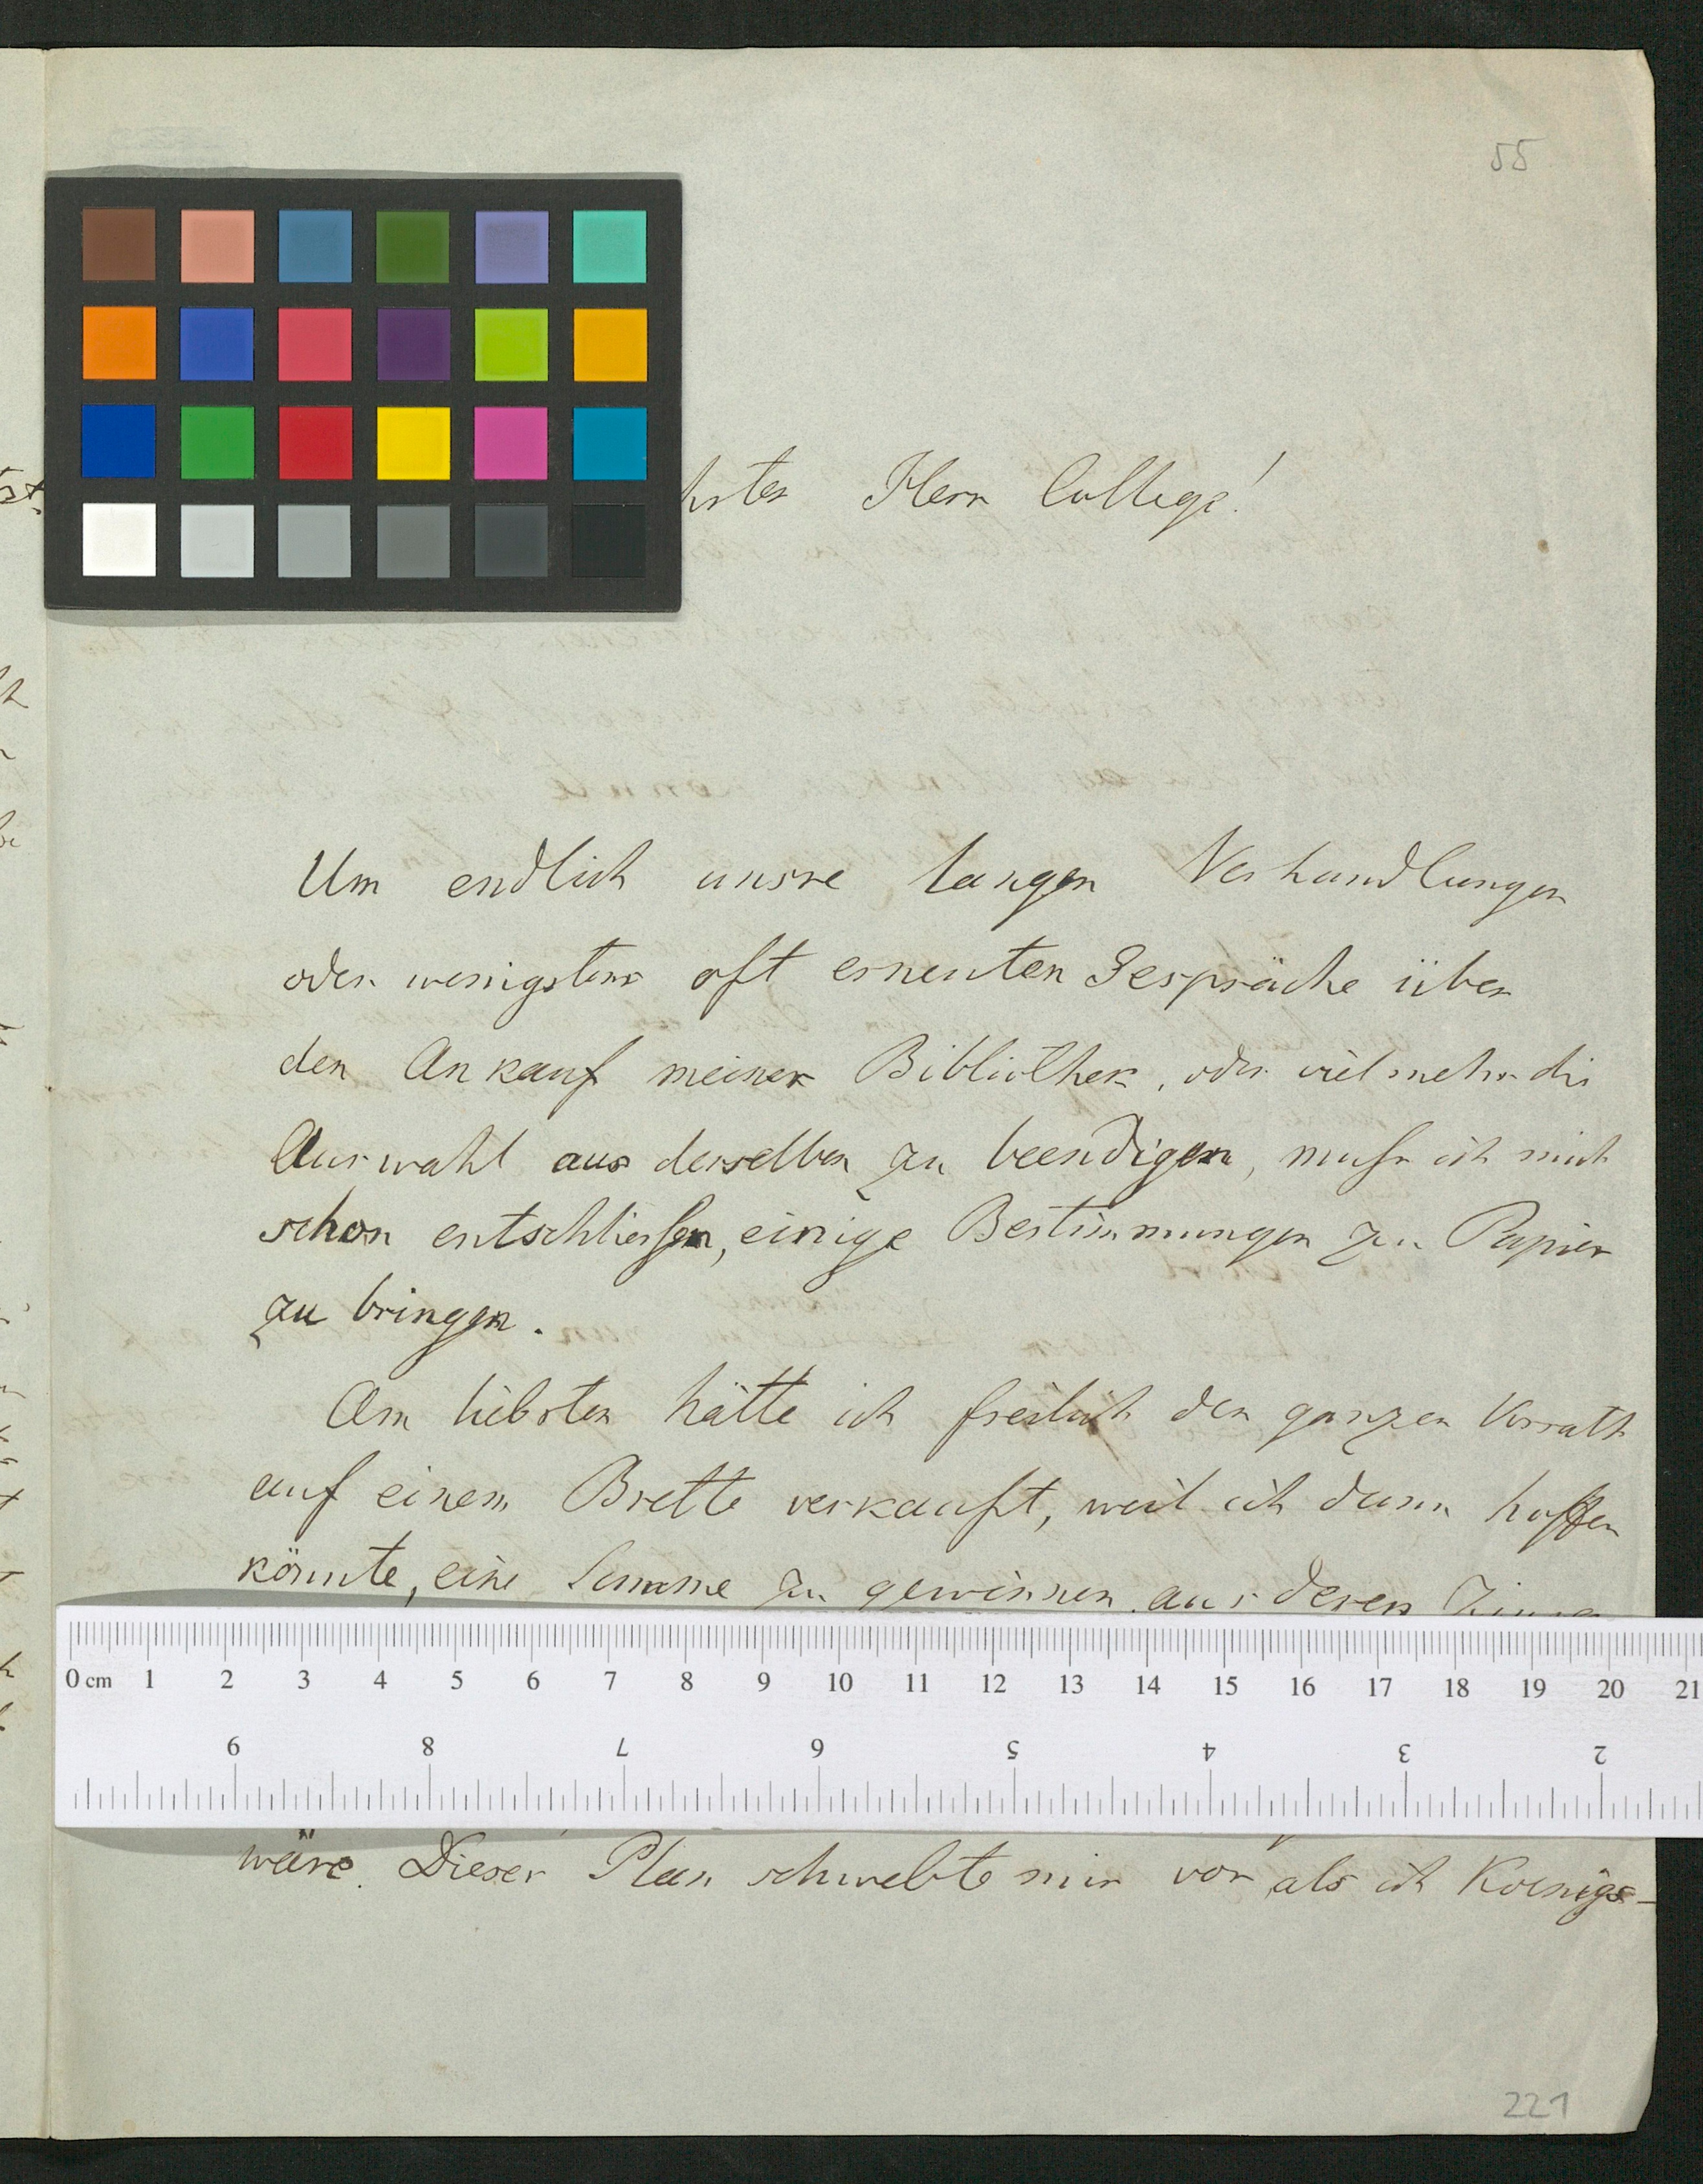 55
hrter Herr College!
Um endlich unsre langen Verhandlungen
oder wenigstens oft erneuten Gespräche über
den Ankauf meiner Bibliothek, oder vielmehr die
Auswahl aus derselben zu beendigen, muſs ich mich
schon entschlieſsen, einige Bestimmungen zu Papier
zu bringen.
Am liebsten hätte ich freilich den ganzen Vorrath
auf einem Brette verkauft, weil ich dann hoffen
könnte, eine Summe zu gewinnen aus deren
0 cm 1 2 3 4 5 6 7 8 9 10 11 12 13 14 15 16 17 18 19 20 21
9 8 7 6 5 4 3 2
wäre. Dieser Plan schwebte mir vor, als ich Koenigs-
221